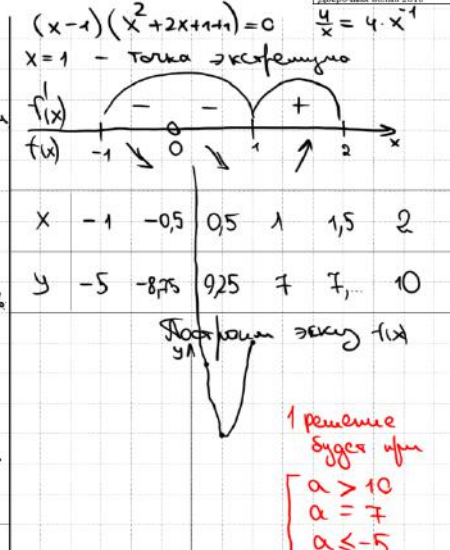 (x-1)(x²+2x+1+1)=0
4/x = 4·x⁻¹
x=1 - точка экстремума
f'(x) - - +
f(x) -1 0 1 2 x
x -1 -0,5 0,5 1 1,5 2
y -5 -8,75 9,25 7 7,... 10
Построим эскиз f(x)
y
1 решение
будет при
a > 10
a = 7
a ≤ -5